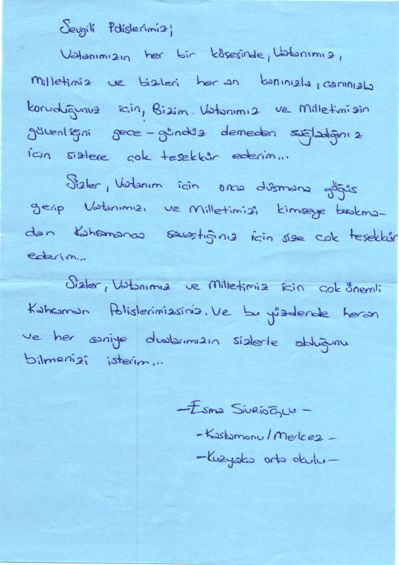 Sevgili Polislerimiz;
Vatanımızın her bir köşesinde, Vatanımız,
Milletimiz ve bizleri her an kanınızla, canınızla
koruduğunuz için, Bizim Vatanımız ve Milletimizin
güvenliğini gece-gündüz demeden sağladığınız
için sizlere çok teşekkür ederim...
Sizler, Vatanım için onca düşmana göğüs
gerip Vatanımızı ve Milletimizi kimseye bırakma-
dan Kahramanca savaştığınız için size çok teşekkür
ederim...
Sizler, Vatanımız ve Milletimiz için çok önemli
Kahraman Polislerimizsiniz. Ve bu yüzdende her an
ve her saniye dualarımızın sizlerle olduğunu
bilmenizi isterim...
-Esma Sivrioğlu-
-Kastamonu/Merkez-
-Kuzyaka orta okulu-